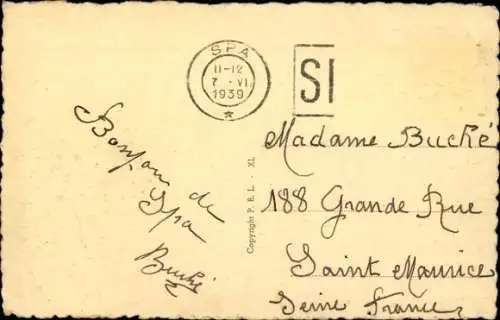 SPA
11-12
7 - VI.
1939
SI
Bonjour de
Spa
Buché
Copyright P. E. L. - XL
Madame Buché
188 Grande Rue
Saint Maurice
Seine France